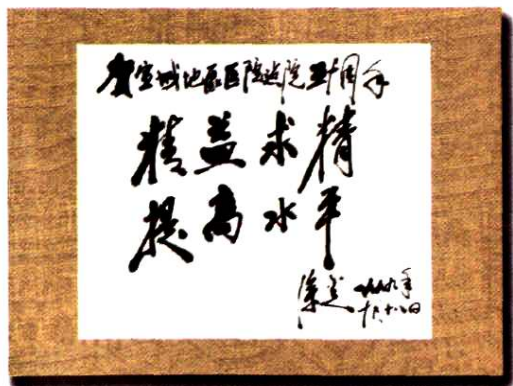 贺宣城地区医院建院五十周年
精益求精
提高水平
一九八九年
十月十八日